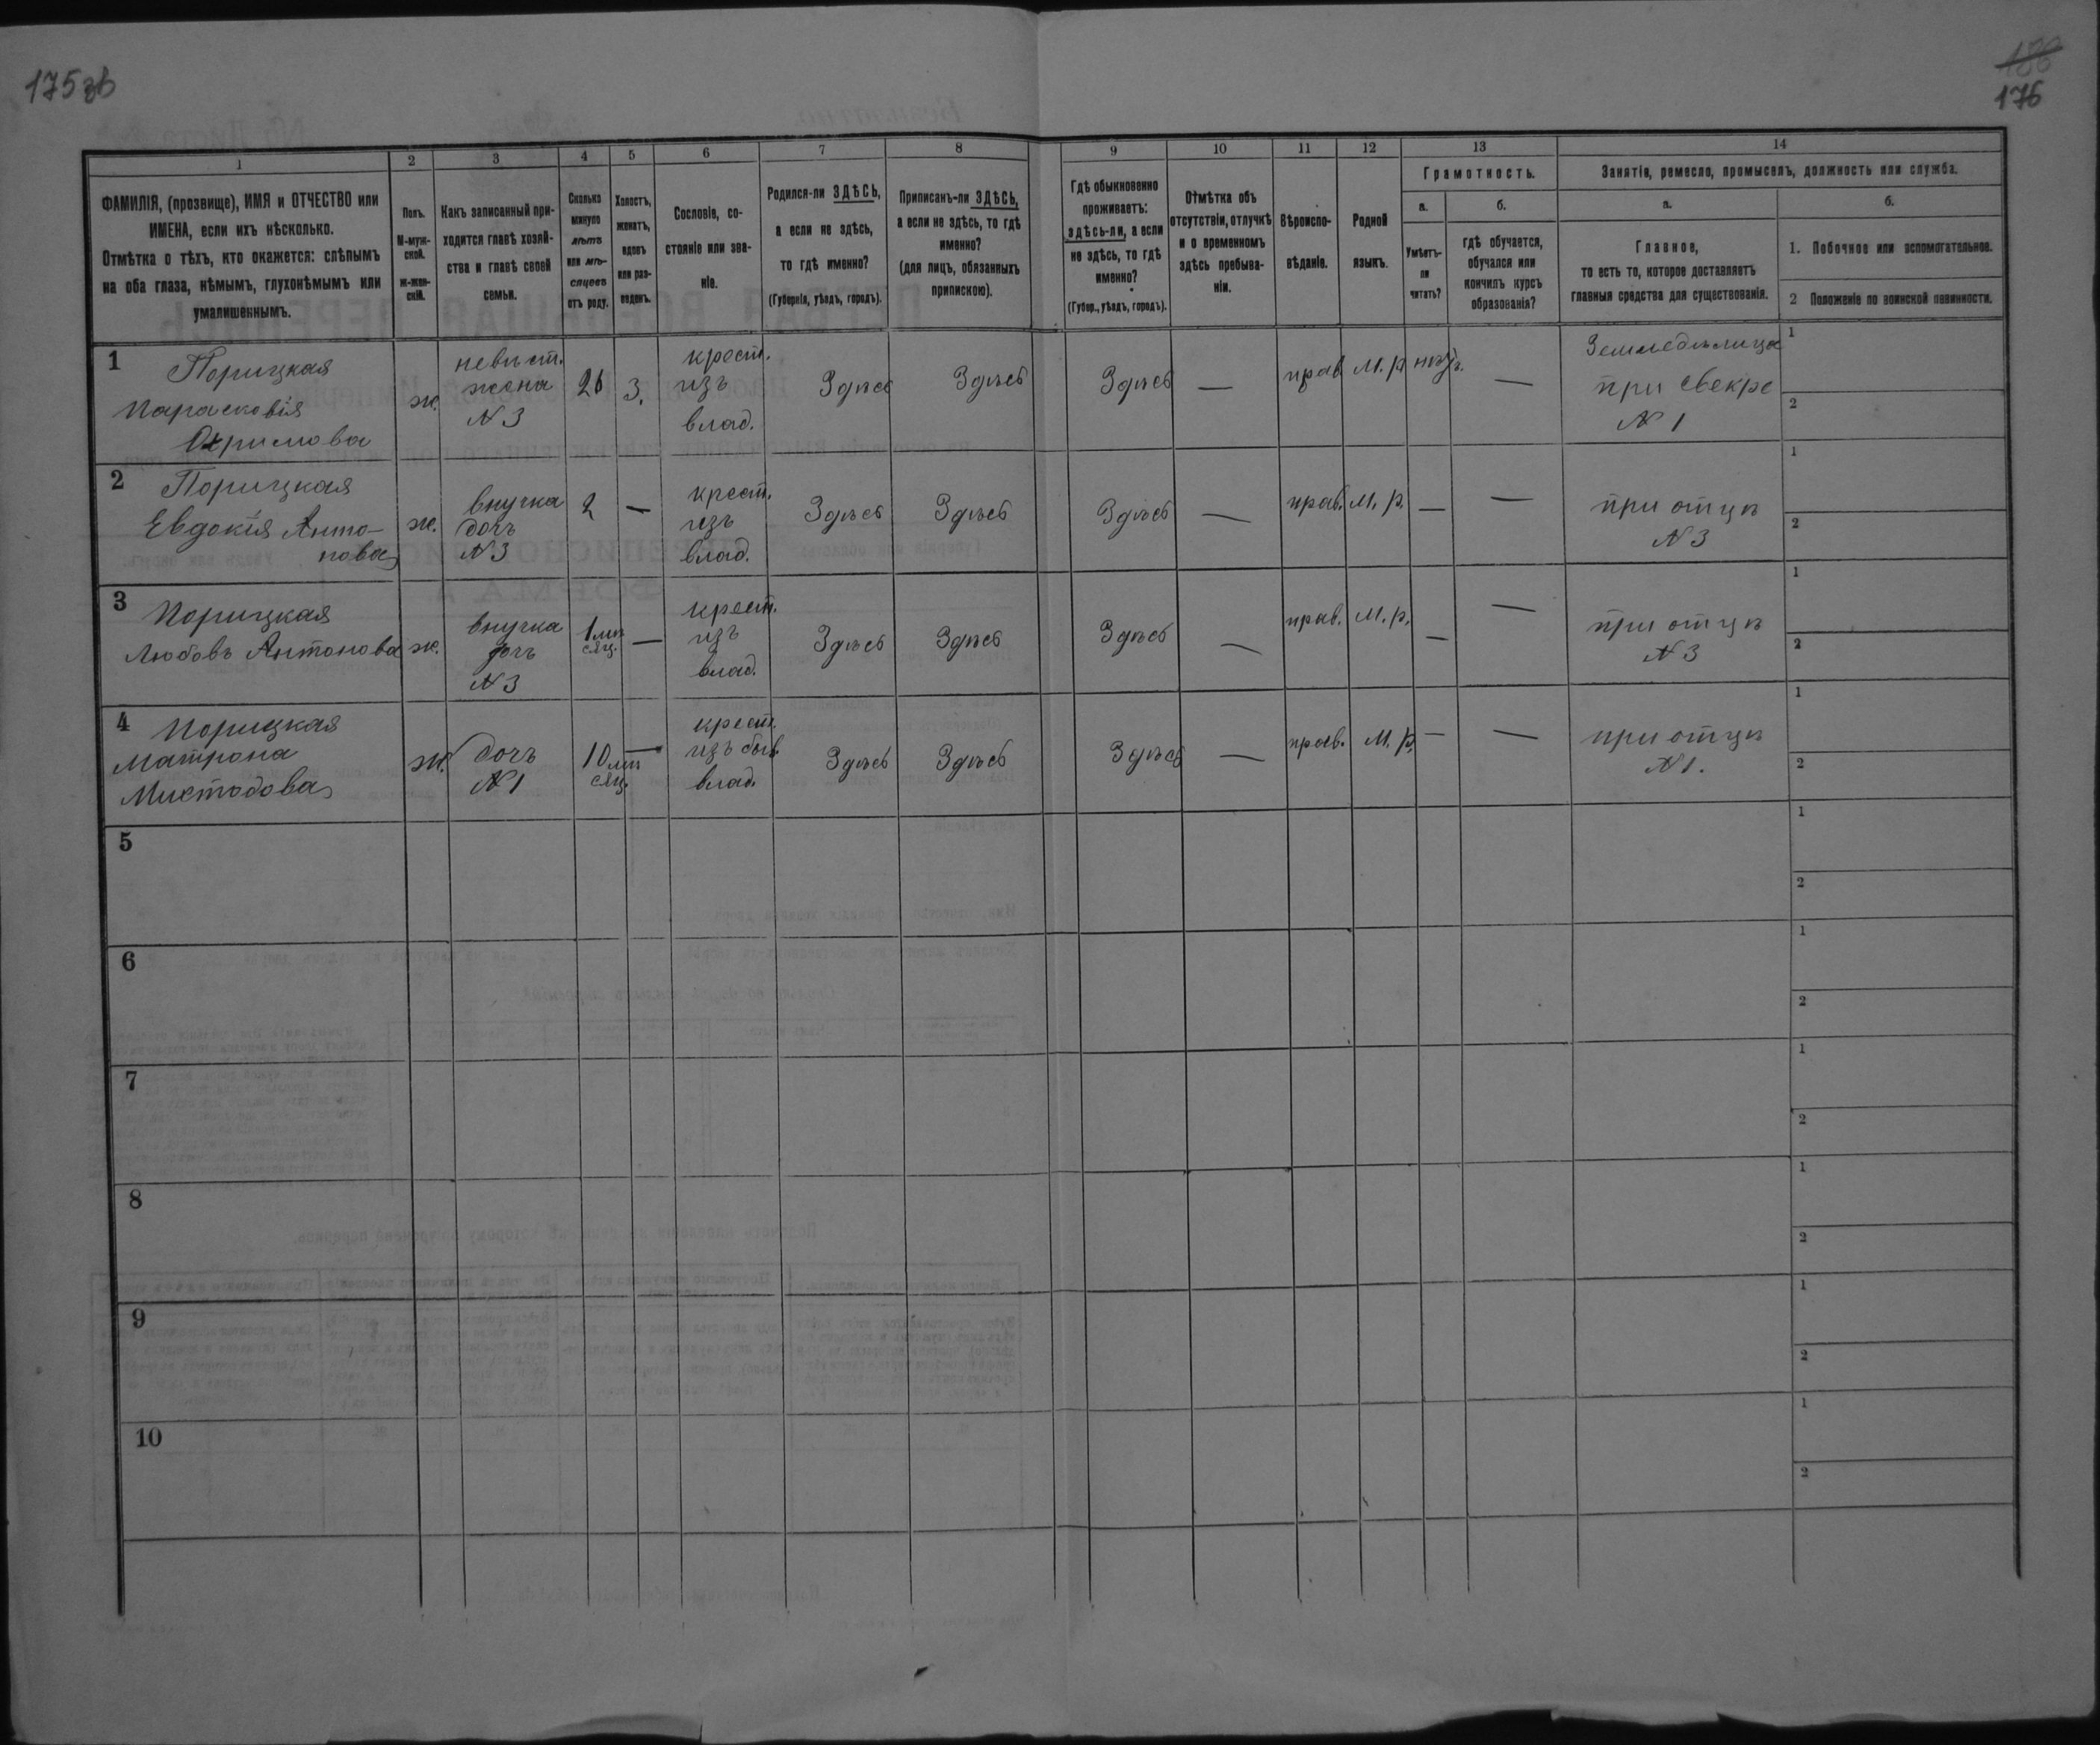 175 зв
186
176
1
2
3
4
5
6
7
8
9
10
11
12
13
14
ФАМИЛІЯ, (прозвище), ИМЯ и ОТЧЕСТВО или
ИМЕНА, если ихъ нѣсколько.
Отмѣтка о тѣхъ, кто окажется: слѣпымъ
на оба глаза, нѣмымъ, глухонѣмымъ или
умалишеннымъ.
Полъ.
М-муж-
ской.
Ж-жен-
скій.
Какъ записанный при-
ходится главѣ хозяй-
ства и главѣ своей
семьи.
Сколько
минуло
лѣтъ
или мѣ-
сяцевъ
отъ роду.
Холостъ,
женатъ,
вдовъ
или раз-
веденъ.
Сословіе, со-
стояніе или зва-
ніе.
Родился-ли ЗДѢСЬ,
а если не здѣсь,
то гдѣ именно?
(Губернія, уѣздъ, городъ).
Приписанъ-ли ЗДѢСЬ,
а если не здѣсь, то гдѣ
именно?
(для лицъ, обязанныхъ
припискою).
Гдѣ обыкновенно
проживаетъ:
здѣсь-ли, а если
не здѣсь, то гдѣ
именно?
(Губер., уѣздъ, городъ).
Отмѣтка объ
отсутствіи, отлучкѣ
и о временномъ
здѣсь пребыва-
ніи.
Вѣроиспо-
вѣданіе.
Родной
языкъ.
Грамотность.
а.
Умѣетъ-
ли
читать?
б.
гдѣ обучается,
обучался или
кончилъ курсъ
образованія?
Занятіе, ремесло, промыселъ, должность или служба.
а.
Главное,
то есть то, которое доставляетъ
главныя средства для существованія.
б.
1. Побочное или вспомогательное.
2 Положеніе по воинской повинности.
1 Порицкая
Парасковія
Охримова
ж.
невѣст.
жона
N 3
26
з.
крест.
изъ
влад.
Здѣсь
Здѣсь
Здѣсь
—
прав
М. р.
нѣтъ.
—
Земледѣлица
при свекре
N 1
1
2
2 Порицкая
Евдокія Анто-
нова
ж.
внучка
дочь
N 3
2
—
крест.
изъ
влад.
Здѣсь
Здѣсь
Здѣсь
—
прав.
М. р.
—
—
при отцѣ
N 3
1
2
3 Порицкая
Любовь Антонова
ж.
внучка
дочь
N 3
1 мѣ
сяц.
—
крест.
изъ
влад.
Здѣсь
Здѣсь
Здѣсь
—
прав.
М. р.
—
—
при отцѣ
N 3
1
2
4 Порицкая
Матрона
Мистодова
ж.
дочь
N 1
10 мѣ
сяц.
—
крест.
изъ быв
влад.
Здѣсь
Здѣсь
Здѣсь
—
прав.
М. р.
—
—
при отцѣ
N 1.
1
2
5
1
2
6
1
2
7
1
2
8
1
2
9
1
2
10
1
2